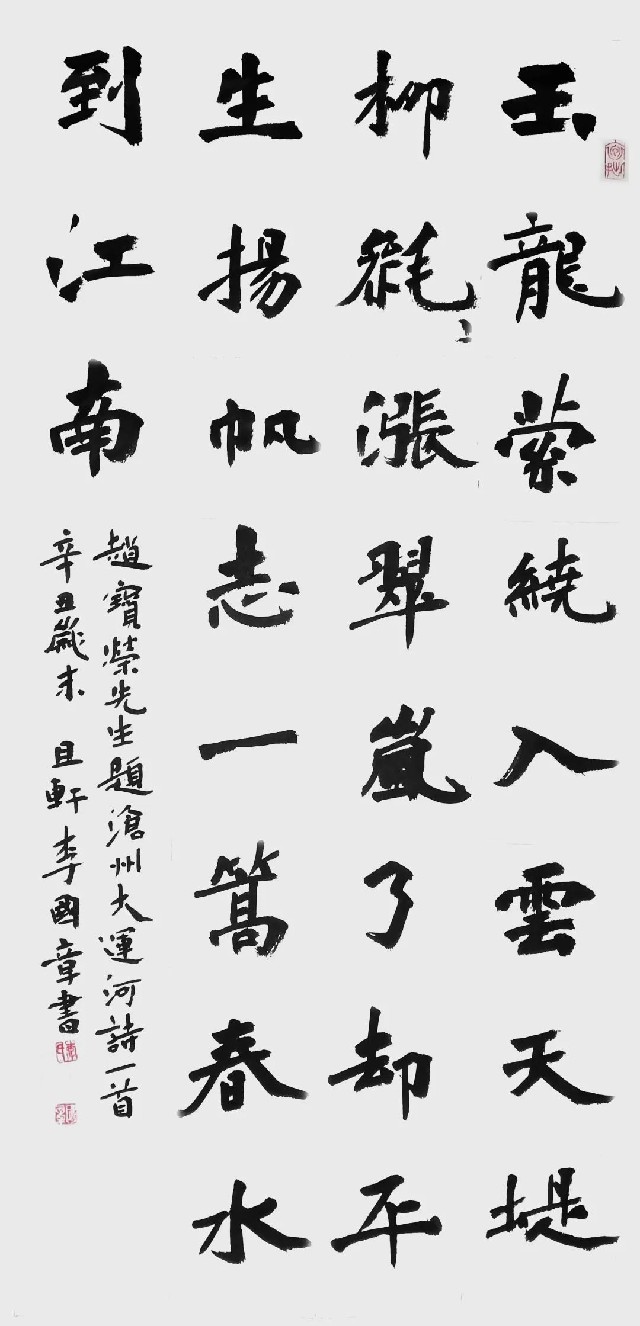 玉龍萦繞入雲天堤
柳毿〻漲翠嵐了却平
生揚帆志一篙春水
到江南
趙寶榮先生題滄州大運河詩一首
辛丑歲末 且軒李國章書